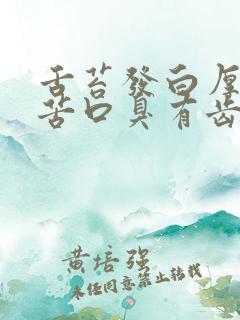 舌苔發白厚
苦口臭有齿
黄培强
未经同意禁止转载